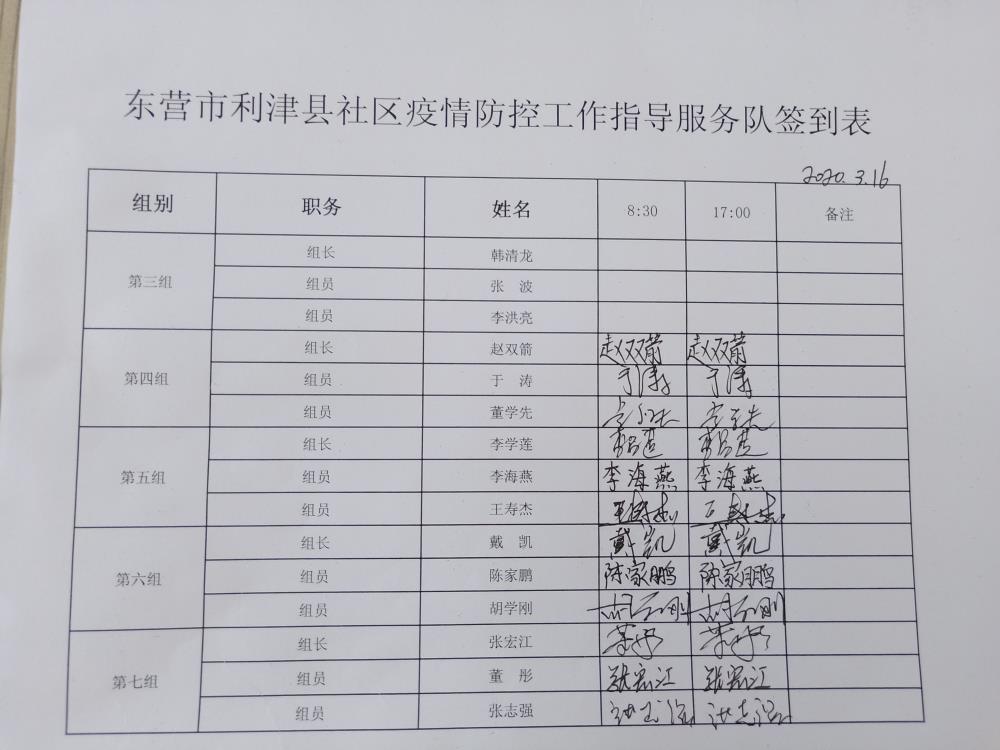 东营市利津县社区疫情防控工作指导服务队签到表
2020.3.16
组别 职务 姓名 8:30 17:00 备注
第三组 组长 韩清龙
组员 张 波
组员 李洪亮
第四组 组长 赵双箭 赵双箭 赵双箭
组员 于 涛 于涛 于涛
组员 董学先
第五组 组长 李学莲
组员 李海燕 李海燕 李海燕
组员 王寿杰 王寿杰 王寿杰
第六组 组长 戴 凯 戴凯 戴凯
组员 陈家鹏 陈家鹏 陈家鹏
组员 胡学刚 胡学刚 胡学刚
第七组 组长 张宏江 董彤 董彤
组员 董 彤 张宏江 张宏江
组员 张志强 张志强 张志强